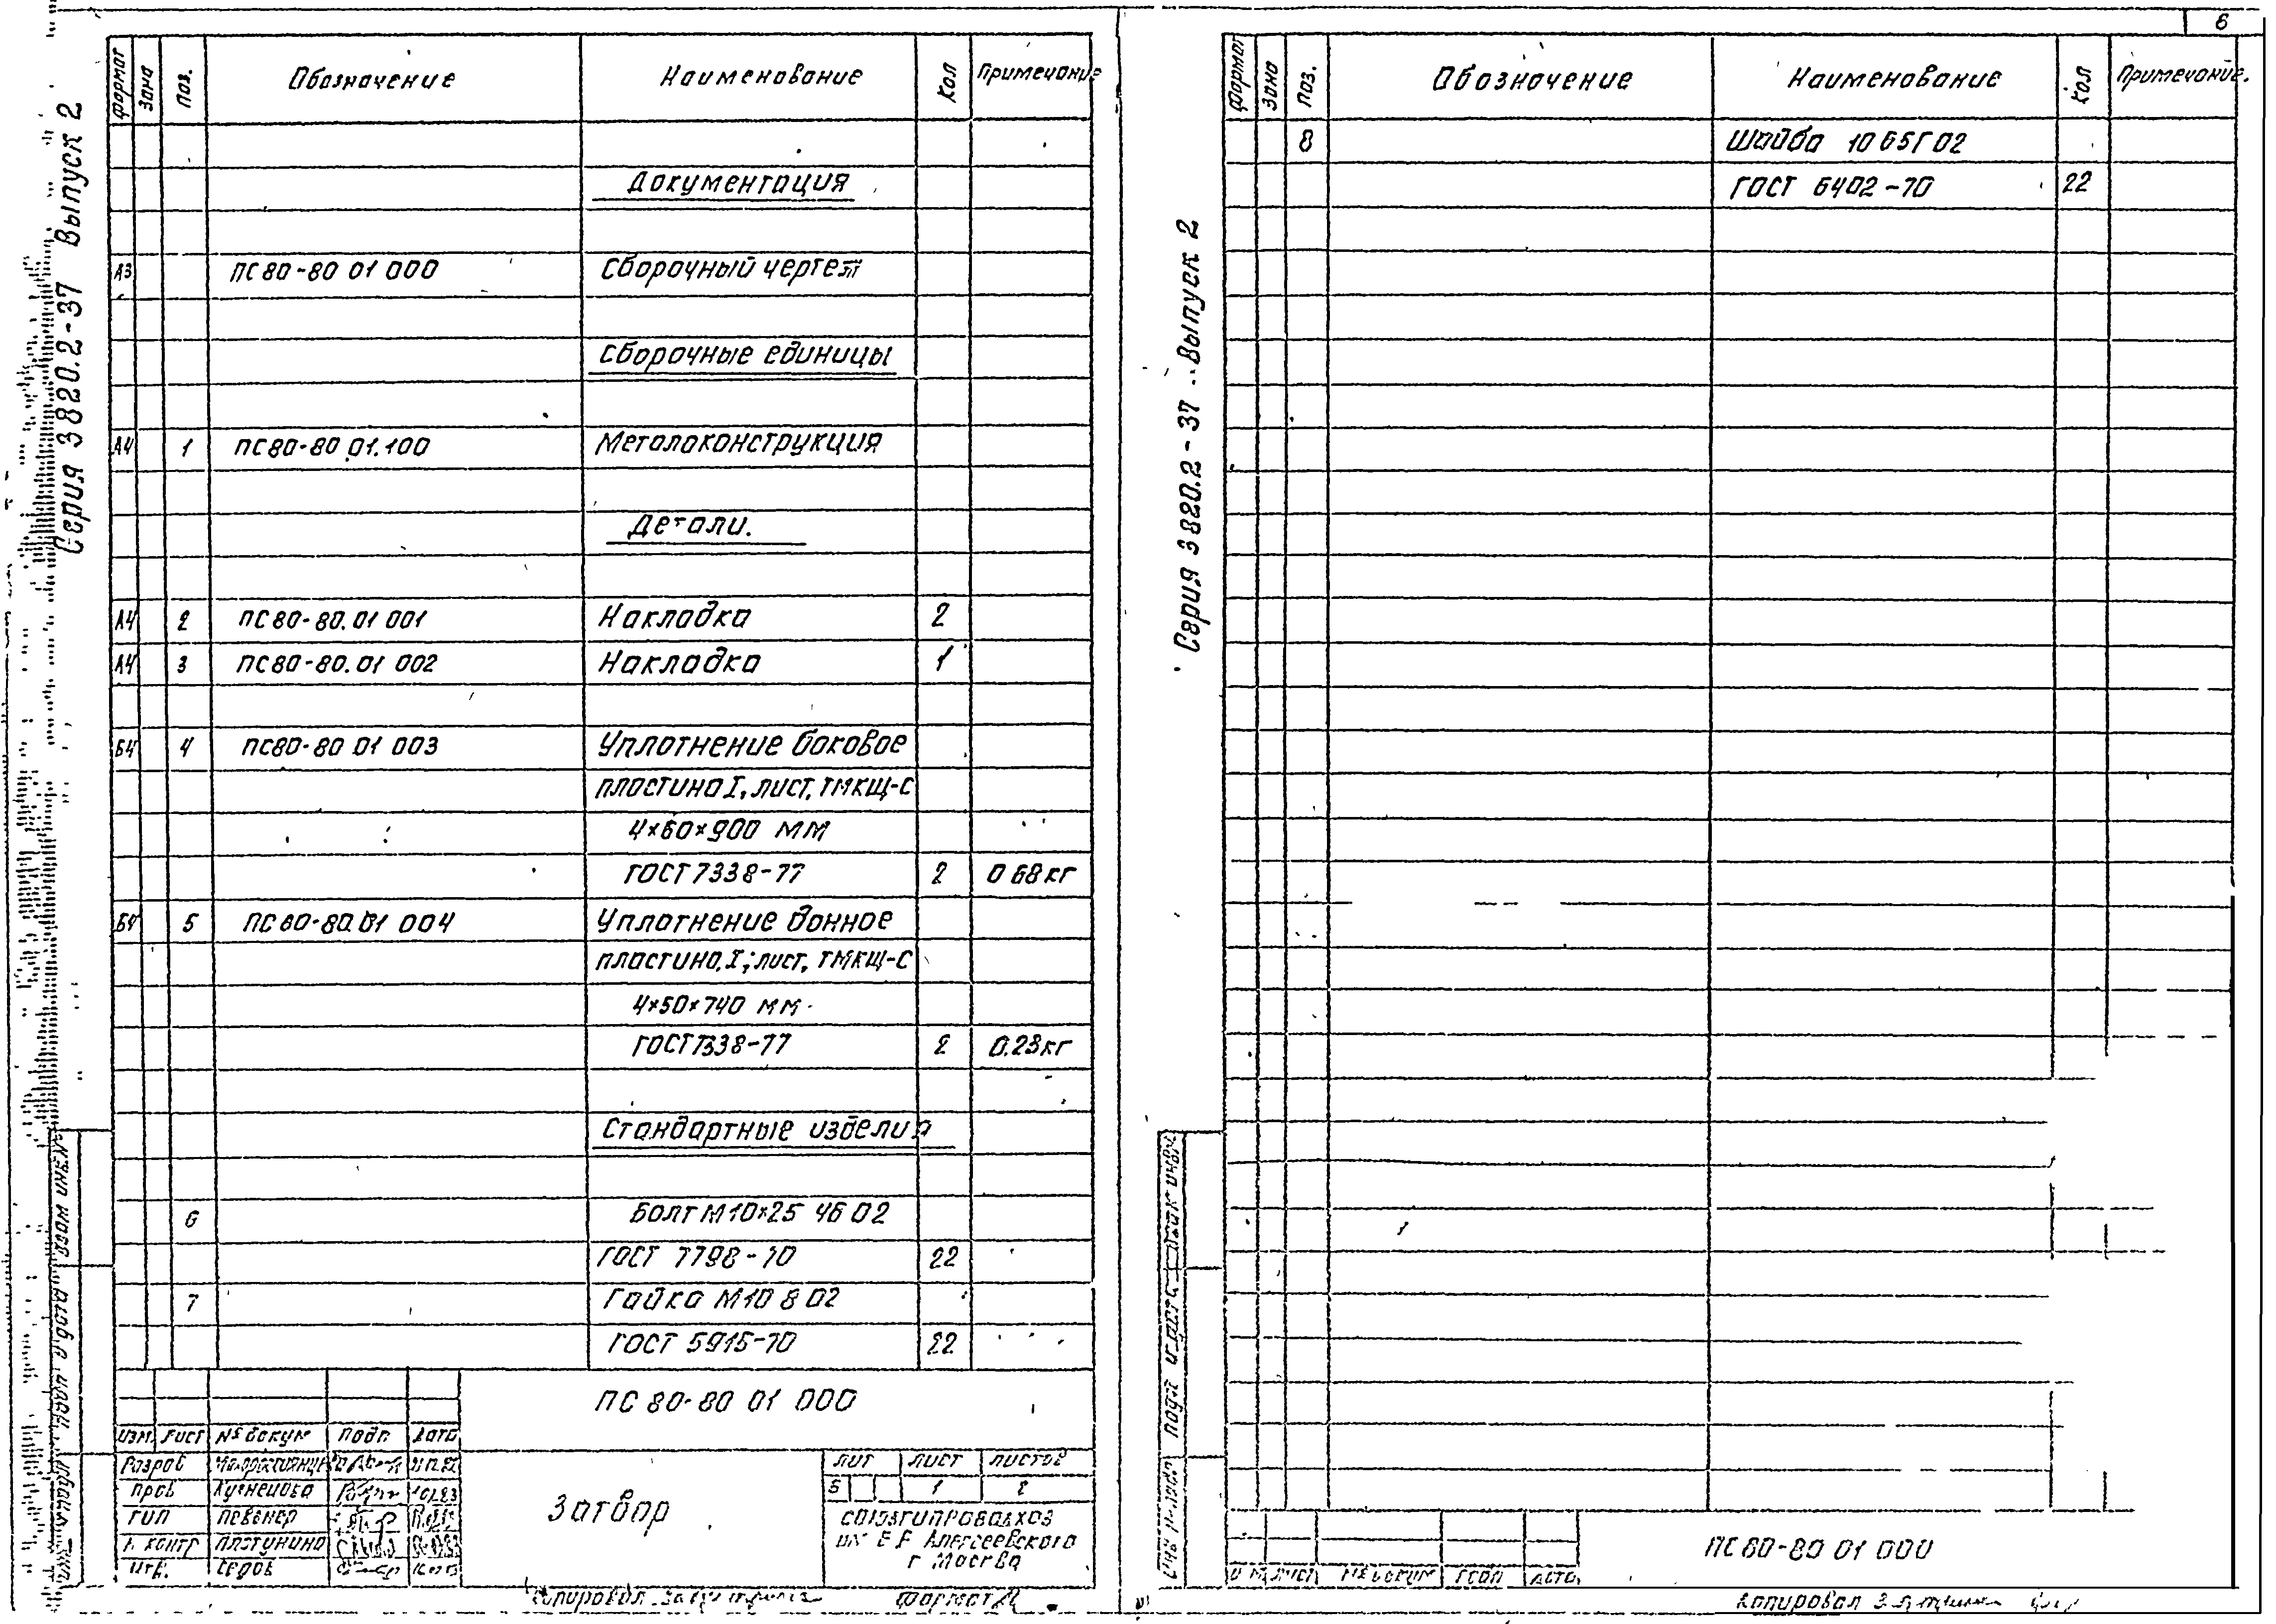 Серия 3820.2-37 Выпуск 2
Формат Зона Поз. Обозначение Наименование Кол Примечание
Документация
А3 ПС80-80 01 000 Сборочный чертеж
Сборочные единицы
А4 1 ПС80-80.01.100 Металоконструкция
Детали.
А4 2 ПС80-80.01 001 Накладка 2
А4 3 ПС80-80.01 002 Накладка 1
Б4 4 ПС80-80 01 003 Уплотнение боковое
пластина I, лист, ТМКЩ-С
4×60×900 мм
ГОСТ 7338-77 2 0 68 кг
Б4 5 ПС80-80.01 004 Уплотнение донное
пластина, I, лист, ТМКЩ-С
4×50×740 мм
ГОСТ 7338-77 2 0.23 кг
Стандартные изделия
6 Болт М10×25 46 02
ГОСТ 7798-70 22
7 Гайка М10 8 02
ГОСТ 5915-70 22
ПС 80-80 01 000
Изм. Лист № докум Подп. Дата
Разраб
Пров Кузнецова
ГИП Певенер
Н контр Плотунина
Утв. Седов
Затвор
Лит Лист Листов
Б 1 2
СОЮЗГИПРОВОДХОЗ
им Е Е Алексеевского
г Москва
Копировал
Формат
6
Серия 3820.2-37 Выпуск 2
Формат Зона Поз. Обозначение Наименование Кол Примечание.
8 Шайба 10 65Г 02
ГОСТ 6402-70 22
ПС 80-80 01 000
Лист № докум Дата
Копировал